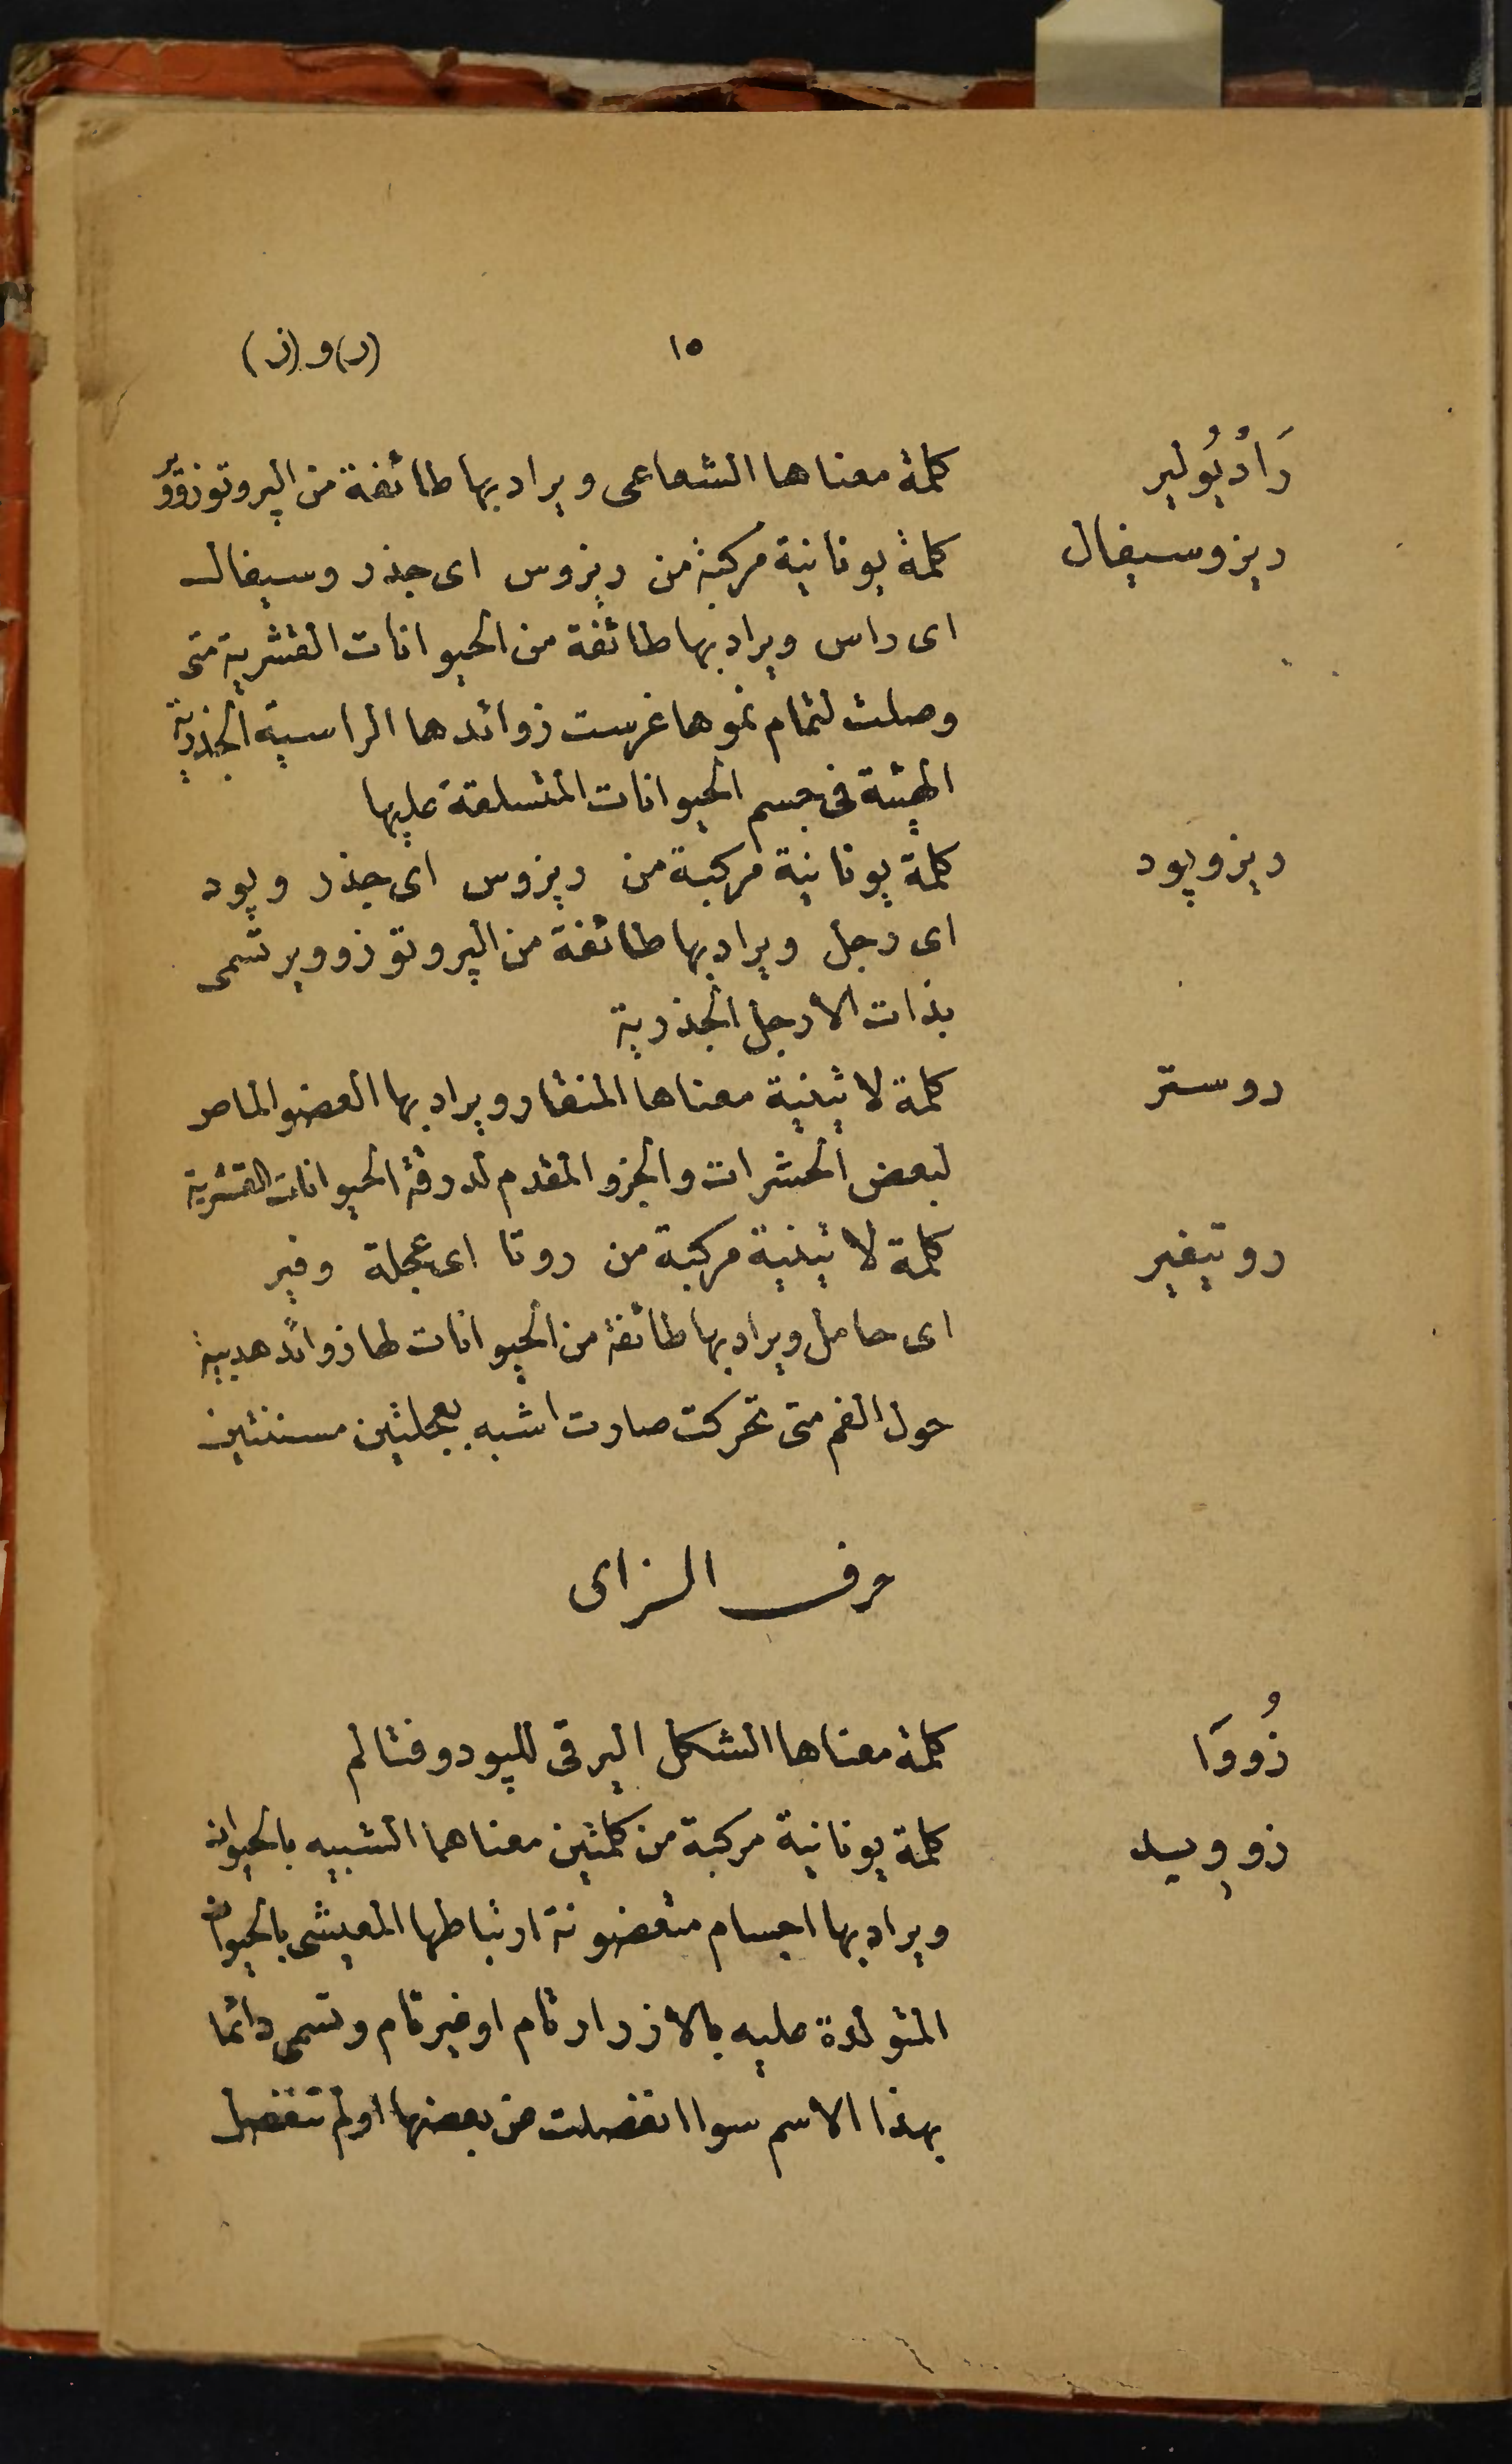 ١٥ (ر) و (ز)
رَادْيُولير كلمة معناها الشعاعى ويراد بها طائفة من الپروتوزووير
ريزوسيفال كلمة يونانية مركبة من ريزوس اى جذر وسيفال
اى راس ويراد بها طائفة من الحيوانات القشرية متى
وصلت لتمام نموها غرست زوائدها الراسية الجذرية
الهيئة فى جسم الحيوانات المتسلقة عليها
ريزوپود كلمة يونانية مركبة من ريزوس اى جذر وپود
اى رجل ويراد بها طائفة من الپروتوزووير تسمى
بذات الارجل الجذرية
روستر كلمة لاتينية معناها المنقار ويراد بها العضو الماص
لبعض الحشرات والجزو المقدم لدرقة الحيوانات القشرية
روتيفير كلمة لاتينية مركبة من روتا اى عجلة وفير
اى حامل ويراد بها طائفة من الحيوانات لها زوائد هدبية
حول الفم متى تحركت صارت اشبه بعجلتين مسننتين
حرف الزاى
زُووَا كلمة معناها الشكل اليرقى للپودوفتالم
زوويد كلمة يونانية مركبة من كلمتين معناهما الشبيه بالحيوان
ويراد بها اجسام متعضونة ارتباطها المعيشى بالحيوان
المتولدة عليه بالازرار تام او غير تام وتسمى دائما
بهذا الاسم سوا انفصلت من بعضها او لم تنفصل